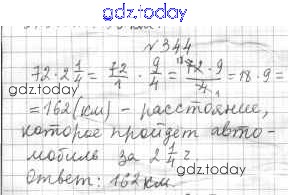 gdz.today
№344
72 · 2 1/4 = 72/1 · 9/4 = 18 72 · 9 / 4 1 = 18 · 9 =
gdz.today
= 162 (км) – расстояние,
которое пройдет авто-
мобиль за 2 1/4 г
ответ: 162 км.
gdz.today